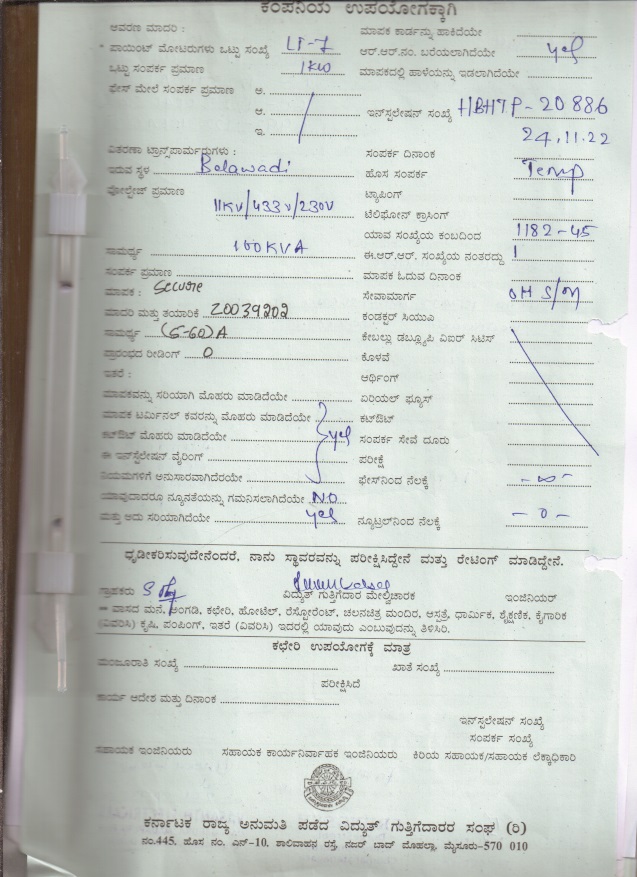 ಕಂಪನಿಯ ಉಪಯೋಗಕ್ಕಾಗಿ
ಆವರಣ ಮಾದರಿ :
ಪಾಯಿಂಟ್ ಮೋಟರುಗಳು ಒಟ್ಟು ಸಂಖ್ಯೆ LT-7
ಒಟ್ಟು ಸಂಪರ್ಕ ಪ್ರಮಾಣ 1KW
ಫೇಸ್ ಮೇಲೆ ಸಂಪರ್ಕ ಪ್ರಮಾಣ ಅ.
ಆ.
ಇ.
ವಿತರಣಾ ಟ್ರಾನ್ಸ್‌ಪಾರ್ಮರುಗಳು :
ಇರುವ ಸ್ಥಳ Belawadi
ವೋಲ್ಟೇಜ್ ಪ್ರಮಾಣ
11KV/433V/230V
ಸಾಮರ್ಥ್ಯ 100KVA
ಸಂಪರ್ಕ ಪ್ರಮಾಣ
ಮಾಪಕ : Secure
ಮಾದರಿ ಮತ್ತು ತಯಾರಿಕೆ 20039202
ಸಾಮರ್ಥ್ಯ (5-60)A
ಪ್ರಾರಂಭದ ರೀಡಿಂಗ್ 0
ಇತರೆ :
ಮಾಪಕವನ್ನು ಸರಿಯಾಗಿ ಮೊಹರು ಮಾಡಿದೆಯೇ
ಮಾಪಕ ಟರ್ಮಿನಲ್ ಕವರನ್ನು ಮೊಹರು ಮಾಡಿದೆಯೇ
ಕಟ್‌ಔಟ್ ಮೊಹರು ಮಾಡಿದೆಯೇ yes
ಈ ಇನ್‌ಸ್ಟಲೇಷನ್ ವೈರಿಂಗ್
ನಿಯಮಗಳಿಗೆ ಅನುಸಾರವಾಗಿದೆರಯೇ
ಯಾವುದಾದರೂ ನ್ಯೂನತೆಯನ್ನು ಗಮನಿಸಲಾಗಿದೆಯೇ NO
ಮತ್ತು ಅದು ಸರಿಯಾಗಿದೆಯೇ yes
ಮಾಪಕ ಕಾರ್ಡನ್ನು ಹಾಕಿದೆಯೇ
ಆರ್.ಆರ್.ನಂ. ಬರೆಯಲಾಗಿದೆಯೇ yes
ಮಾಪಕದಲ್ಲಿ ಹಾಳೆಯನ್ನು ಇಡಲಾಗಿದೆಯೇ
ಇನ್‌ಸ್ಟಲೇಷನ್ ಸಂಖ್ಯೆ HBHTP-20886
24.11.22
ಸಂಪರ್ಕ ದಿನಾಂಕ
ಹೊಸ ಸಂಪರ್ಕ Temp
ಟ್ಯಾಪಿಂಗ್
ಟೆಲಿಫೋನ್ ಕ್ರಾಸಿಂಗ್
ಯಾವ ಸಂಖ್ಯೆಯ ಕಂಬದಿಂದ 1182-45
ಈ.ಆರ್.ಆರ್. ಸಂಖ್ಯೆಯ ನಂತರದ್ದು 1
ಮಾಪಕ ಓದುವ ದಿನಾಂಕ
ಸೇವಾಮಾರ್ಗ OH S/M
ಕಂಡಕ್ಟರ್ ಸಿಯುಎ
ಕೇಬಲ್ಲು ಡಬ್ಲ್ಯೂಪಿ ವಿಐರ್ ಸಿಟಿಸ್
ಕೊಳವೆ
ಆರ್ಥಿಂಗ್
ಏರಿಯಲ್ ಫ್ಯೂಸ್
ಕಟ್‌ಔಟ್
ಸಂಪರ್ಕ ಸೇವೆ ದೂರು
ಪರೀಕ್ಷೆ
ಫೇಸ್‌ನಿಂದ ನೆಲಕ್ಕೆ -∞-
ನ್ಯೂಟ್ರಲ್‌ನಿಂದ ನೆಲಕ್ಕೆ -0-
ಧೃಡೀಕರಿಸುವುದೇನೆಂದರೆ, ನಾನು ಸ್ಥಾವರವನ್ನು ಪರೀಕ್ಷಿಸಿದ್ದೇನೆ ಮತ್ತು ರೇಟಿಂಗ್ ಮಾಡಿದ್ದೇನೆ.
ಗ್ರಾಹಕರು ವಿದ್ಯುತ್ ಗುತ್ತಿಗೆದಾರ ಮೇಲ್ವಿಚಾರಕ ಇಂಜಿನಿಯರ್
ವಾಸದ ಮನೆ, ಅಂಗಡಿ, ಕಛೇರಿ, ಹೋಟೆಲ್, ರೆಸ್ಟೋರೆಂಟ್, ಚಲನಚಿತ್ರ ಮಂದಿರ, ಆಸ್ಪತ್ರೆ, ಧಾರ್ಮಿಕ, ಶೈಕ್ಷಣಿಕ, ಕೈಗಾರಿಕೆ
(ವಿವರಿಸಿ) ಕೃಷಿ, ಪಂಪಿಂಗ್, ಇತರೆ (ವಿವರಿಸಿ) ಇದರಲ್ಲಿ ಯಾವುದು ಎಂಬುವುದನ್ನು ತಿಳಿಸಿರಿ.
ಕಛೇರಿ ಉಪಯೋಗಕ್ಕೆ ಮಾತ್ರ
ಮಂಜೂರಾತಿ ಸಂಖ್ಯೆ ಖಾತೆ ಸಂಖ್ಯೆ
ಪರೀಕ್ಷಿಸಿದೆ
ಕಾರ್ಯ ಆದೇಶ ಮತ್ತು ದಿನಾಂಕ
ಇನ್‌ಸ್ಟಲೇಷನ್ ಸಂಖ್ಯೆ
ಸಂಪರ್ಕ ಸಂಖ್ಯೆ
ಸಹಾಯಕ ಇಂಜಿನಿಯರು ಸಹಾಯಕ ಕಾರ್ಯನಿರ್ವಾಹಕ ಇಂಜಿನಿಯರು ಕಿರಿಯ ಸಹಾಯಕ/ಸಹಾಯಕ ಲೆಕ್ಕಾಧಿಕಾರಿ
ಕರ್ನಾಟಕ ರಾಜ್ಯ ಅನುಮತಿ ಪಡೆದ ವಿದ್ಯುತ್ ಗುತ್ತಿಗೆದಾರರ ಸಂಘ (ರಿ)
ನಂ.445, ಹೊಸ ನಂ. ಎನ್-10, ಶಾಲಿವಾಹನ ರಸ್ತೆ, ನಜರ್ ಬಾದ್ ಮೊಹಲ್ಲಾ, ಮೈಸೂರು-570 010